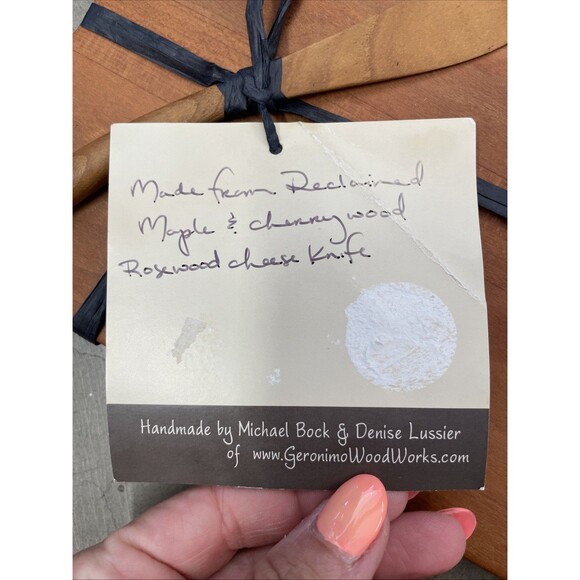 Made from Reclaimed
Maple & cherry wood
Rosewood cheese Knife
Handmade by Michael Bock & Denise Lussier
of www.GeronimoWoodWorks.com